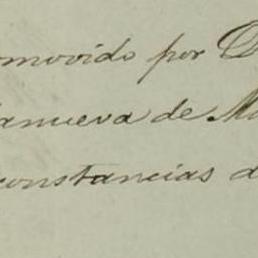 omovido por D
lanueva de Ma
constancias d